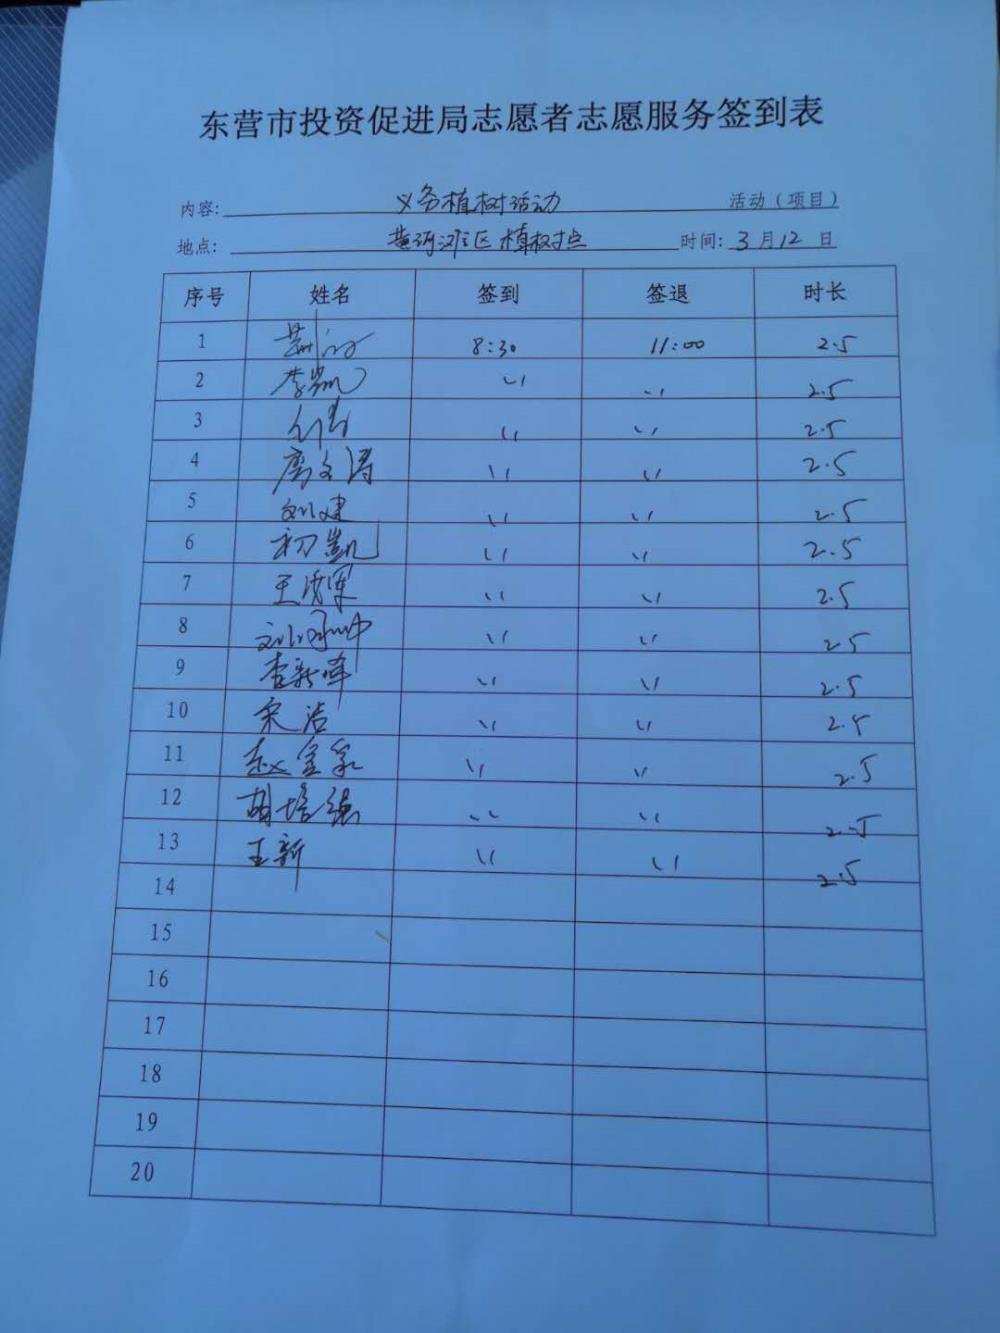 东营市投资促进局志愿者志愿服务签到表
内容: 义务植树活动 活动（项目）
地点: 黄河滩区植树点 时间: 3月12日
序号 姓名 签到 签退 时长
1 8:30 11:00 2.5
2 李凯 〃 〃 2.5
3 〃 〃 2.5
4 高文涛 〃 〃 2.5
5 刘建 〃 〃 2.5
6 初凯 〃 〃 2.5
7 王 军 〃 〃 2.5
8 刘 〃 〃 2.5
9 李新峰 〃 〃 2.5
10 宋洁 〃 〃 2.5
11 赵金 〃 〃 2.5
12 胡培 〃 〃 2.5
13 王新 〃 〃 2.5
14
15
16
17
18
19
20